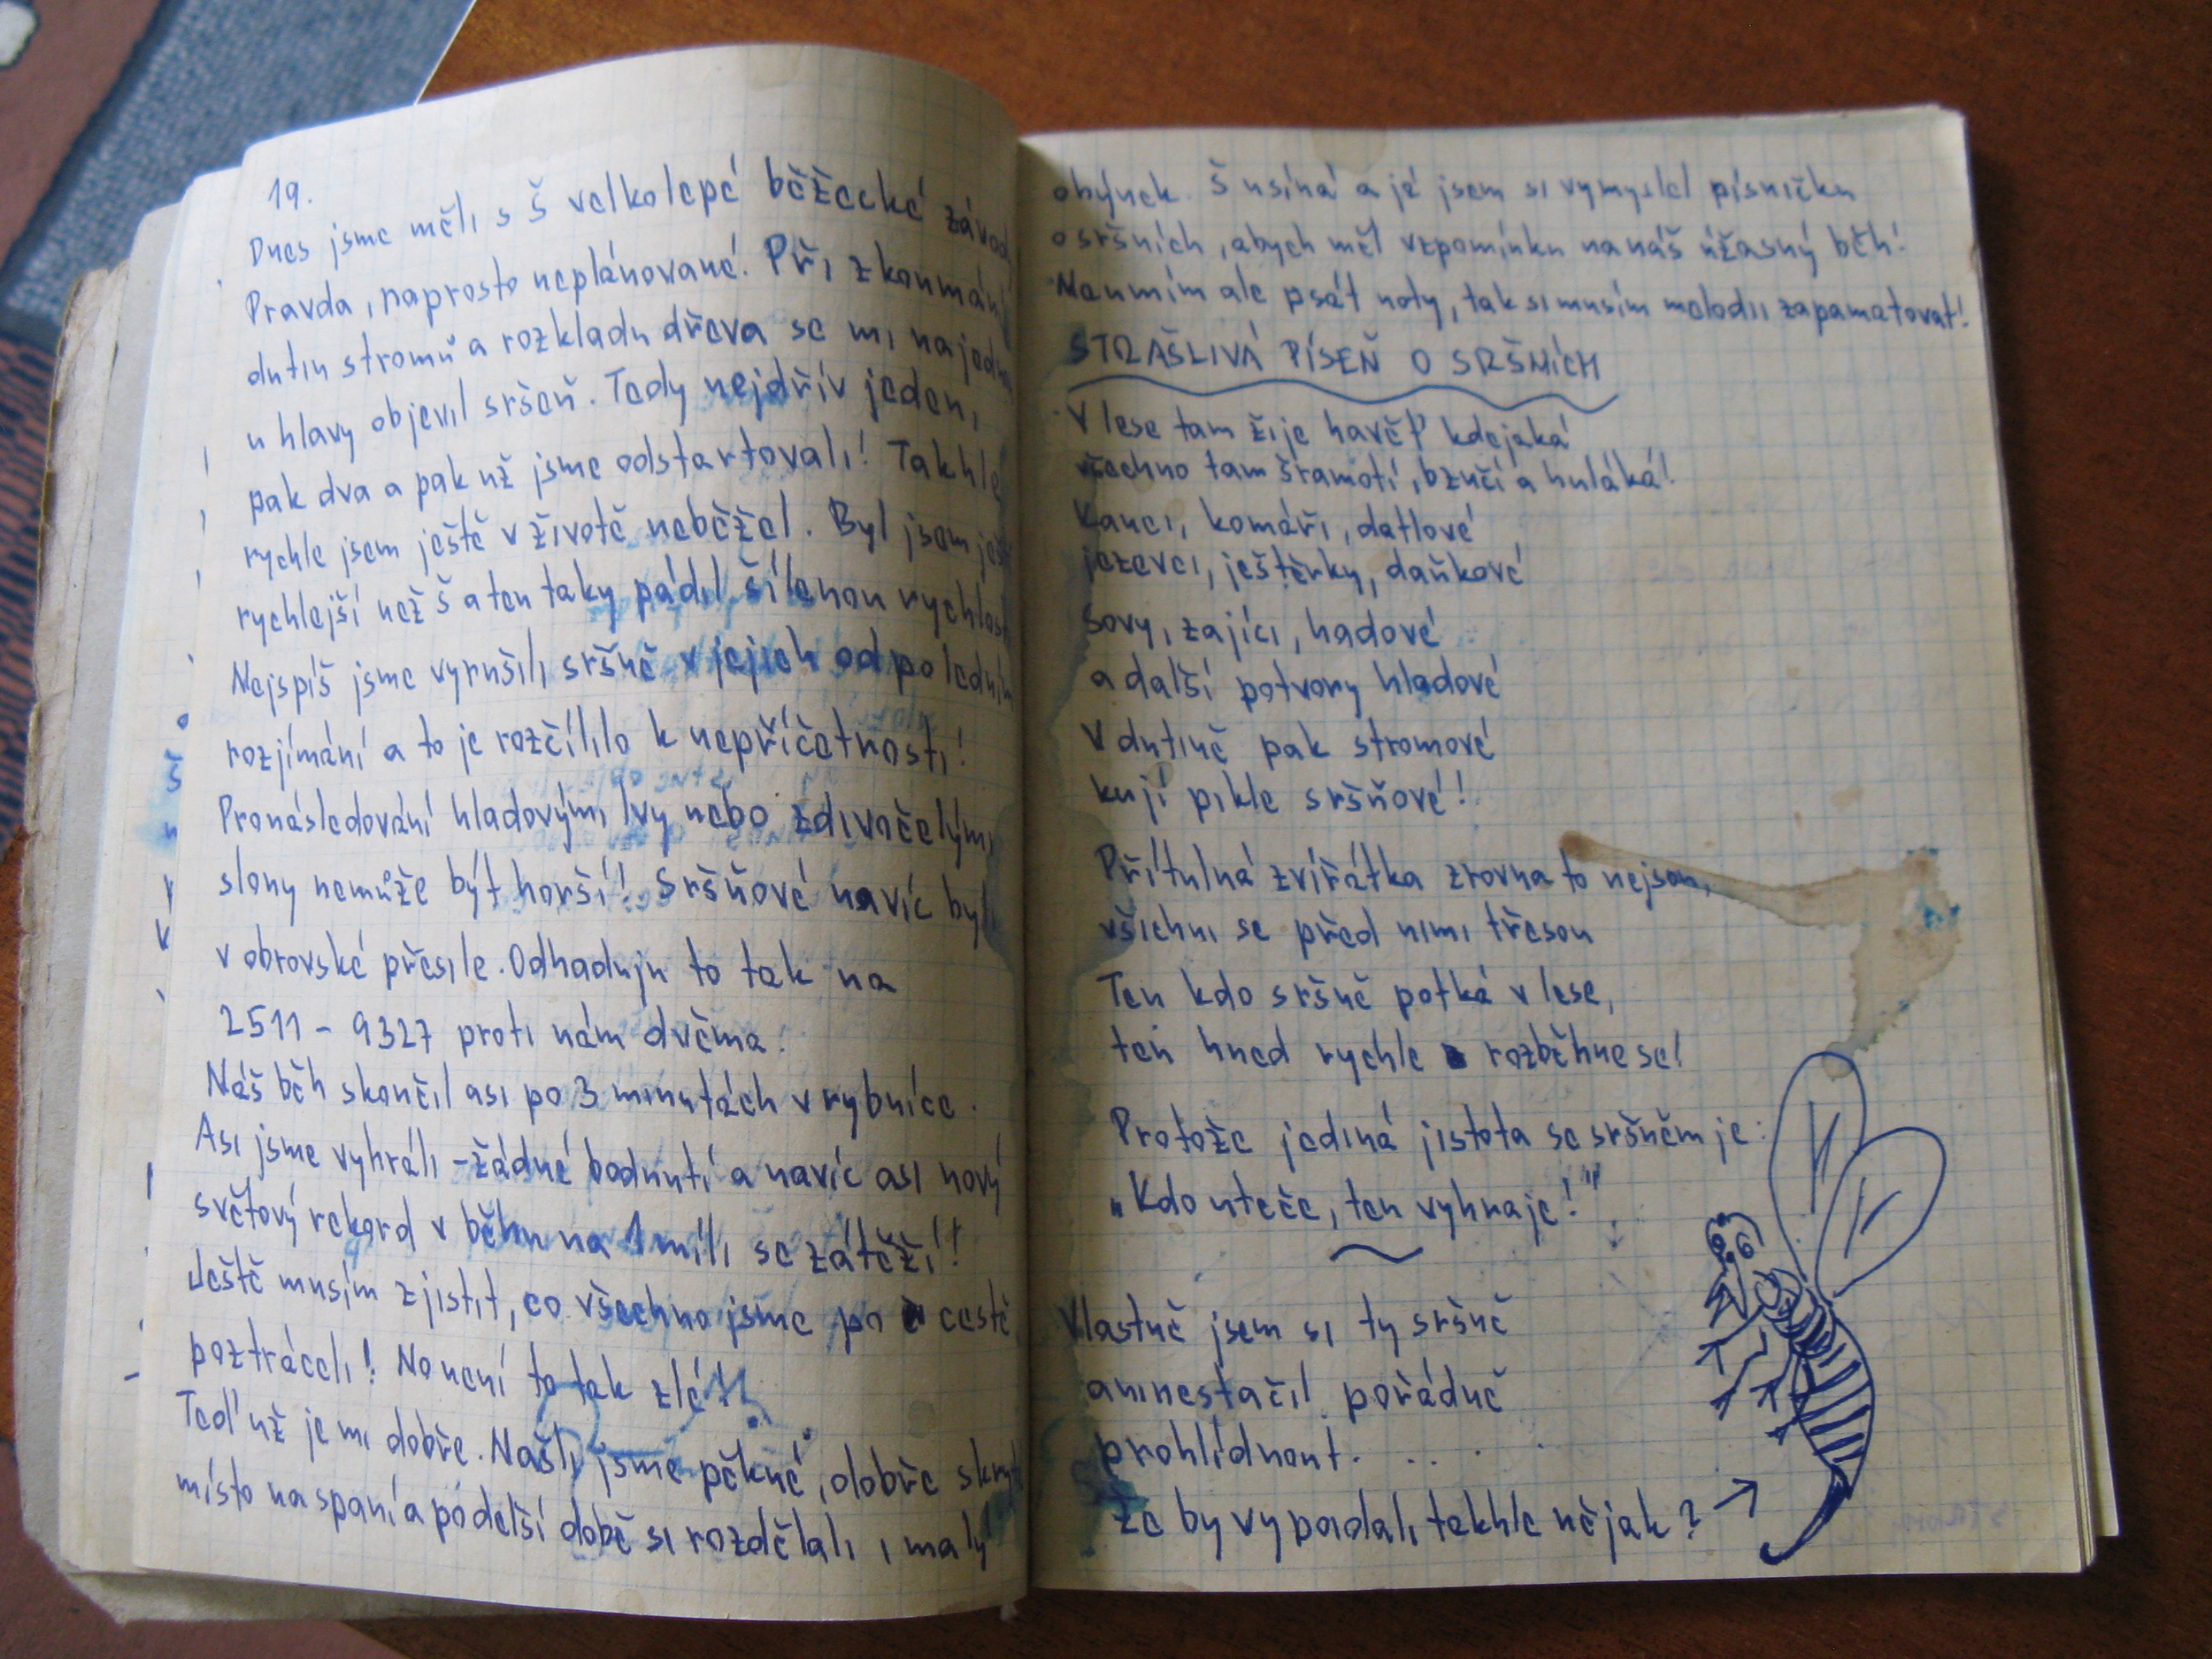 19.
Dnes jsme měli s Š velkolepé běžecké závod
Pravda, naprosto neplánované. Při zkoumání
dutin stromů a rozkladu dřeva se mi najednou
u hlavy objevil sršeň. Tedy nejdřív jeden,
pak dva a pak už jsme odstartovali! Takhle
rychle jsem ještě v životě neběžel. Byl jsem ješ
rychlejší než Š a ten taky pádil šílenou rychlos
Nejspíš jsme vyrušili sršně v jejich odpoledním
rozjímání a to je rozčílilo k nepříčetnosti!
Pronásledování hladovými lvy nebo zdivočelými
slony nemůže být horší! Sršňové navíc byli
v obrovské přesile. Odhaduju to tak na
2511 - 9327 proti nám dvěma!
Náš běh skončil asi po 3 minutách v rybníce.
Asi jsme vyhráli - žádné bodnutí a navíc asi nový
světový rekord v běhu na 1 míli se zátěží!
Ještě musím zjistit, co všechno jsme po cestě
poztráceli! No není to tak zlé!!
Teď už je mi dobře. Našli jsme pěkné, dobře skryté
místo na spaní a po delší době si rozdělali i malý
ohýnek. Š usíná a já jsem si vymyslel písničku
o sršních, abych měl vzpomínku na náš úžasný běh!
Neumím ale psát noty, tak si musím melodii zapamatovat!
STRAŠLIVÁ PÍSEŇ O SRŠNÍCH
V lese tam žije havěť kdejaká
všechno tam šramotí, bzučí a huláká!
Kanci, komáři, datlové
jezevci, ještěrky, daňkové
Sovy, zajíci, hadové
a další potvory hladové
V dutině pak stromové
kují pikle sršňové!
Přítulná zvířátka zrovna to nejsou,
všichni se před nimi třesou
Ten kdo sršně potká v lese,
ten hned rychle rozběhne se!
Protože jediná jistota se sršněm je:
„Kdo uteče, ten vyhraje!"
Vlastně jsem si ty sršně
ani nestačil pořádně
prohlídnout. . . .
Že by vypadali takhle nějak? →